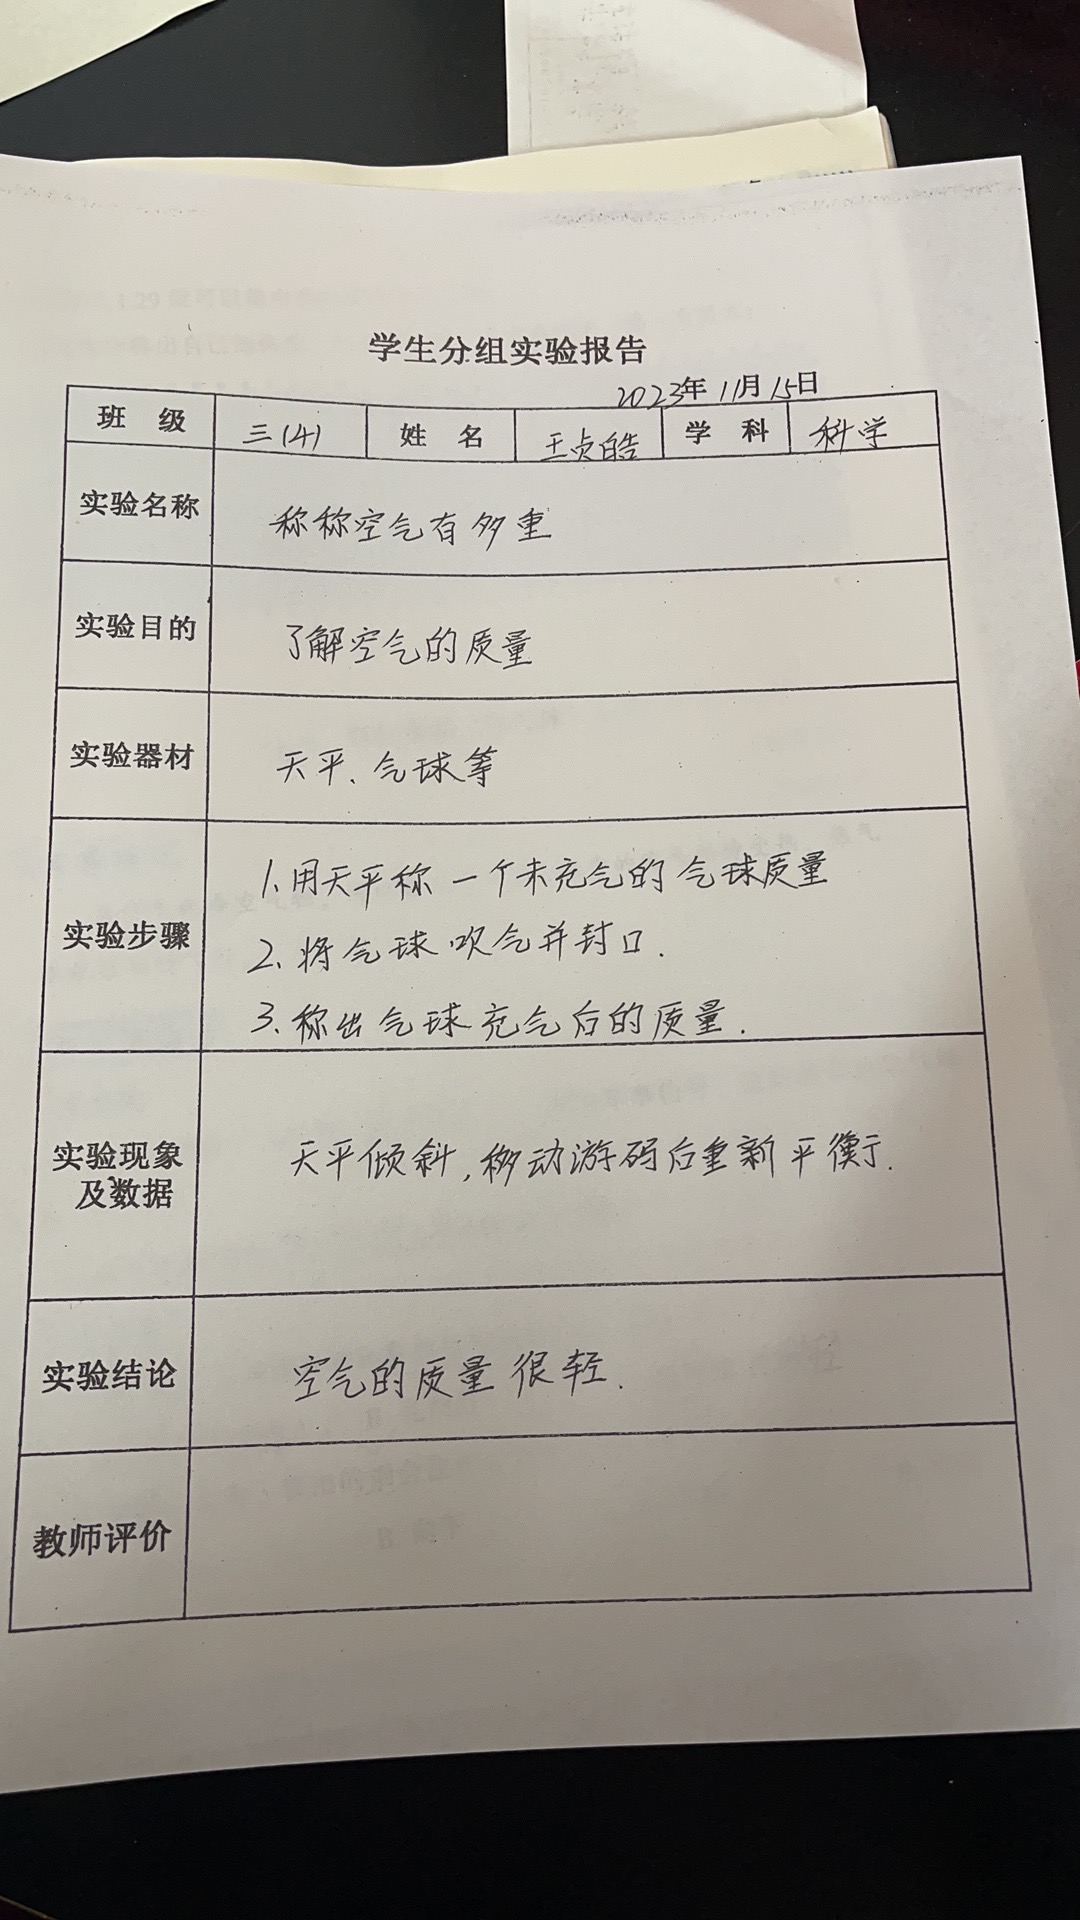 学生分组实验报告
2023年11月15日
班 级 三(4) 姓 名 王贞皓 学 科 科学
实验名称 称称空气有多重
实验目的 了解空气的质量
实验器材 天平、气球等
实验步骤
1、用天平称一个未充气的气球质量
2、将气球吹气并封口.
3、称出气球充气后的质量.
实验现象
及数据
天平倾斜,移动游码后重新平衡.
实验结论 空气的质量很轻.
教师评价